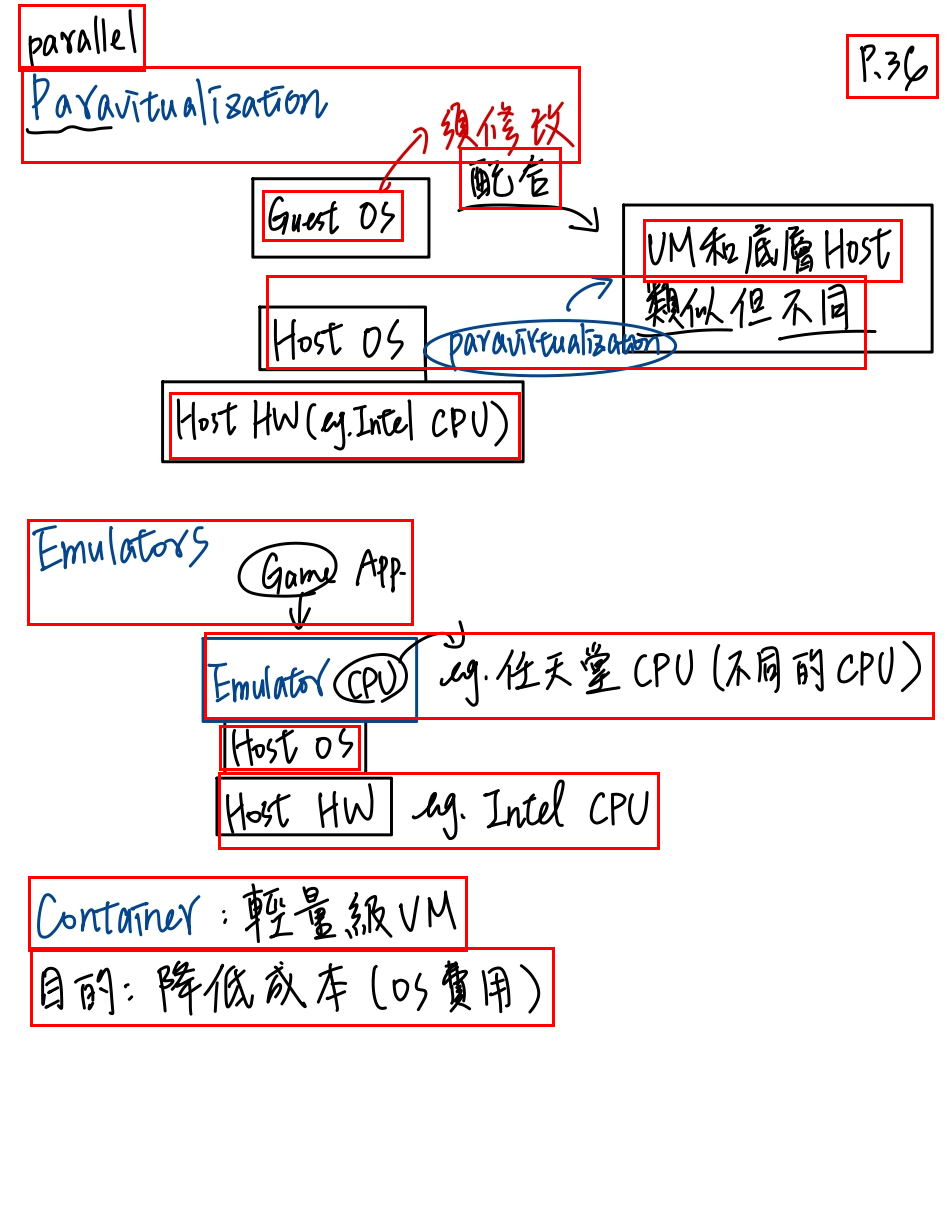 parallel
P.36
Paravitualization 須修改
配合
Guest OS
VM和底層Host
Host OS paravirtualization 類似但不同
Host HW(eg.Intel CPU)
Emulators Game App.
Emulator CPU eg.任天堂CPU(不同的CPU)
Host OS
Host HW eg. Intel CPU
Container:輕量級VM
目的:降低成本(OS費用)